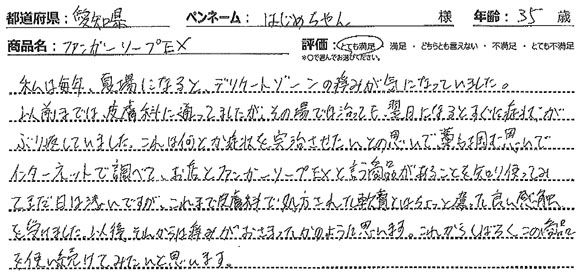 都道府県: 愛知県 ペンネーム: はじめちゃん 様 年齢: 35 歳
商品名: ファンガソープEX 評価: とても満足 ・ 満足 ・ どちらとも言えない ・ 不満足 ・ とても不満足
*○で選んでお選びください。
私は毎年、夏場になると、デリケートゾーンの痒みが気になっていました。
以前までは、皮膚科に通ってましたが、その場では治っても、翌日になるとすぐに症状が
ぶり返していました。これは何とか症状を完治させたいとの思いで藁をも掴む思いで
インターネットで調べて、お店とファンガーソープEXと言う商品があることを知り使ってみ
てまだ日は浅いですが、これまで皮膚科で処方された軟膏とはちょっと違った良い感触
を受けました。以後、それからは痒みがおさまったかのように思います。これからしばらく、この商品
を使い続けてみたいと思います。